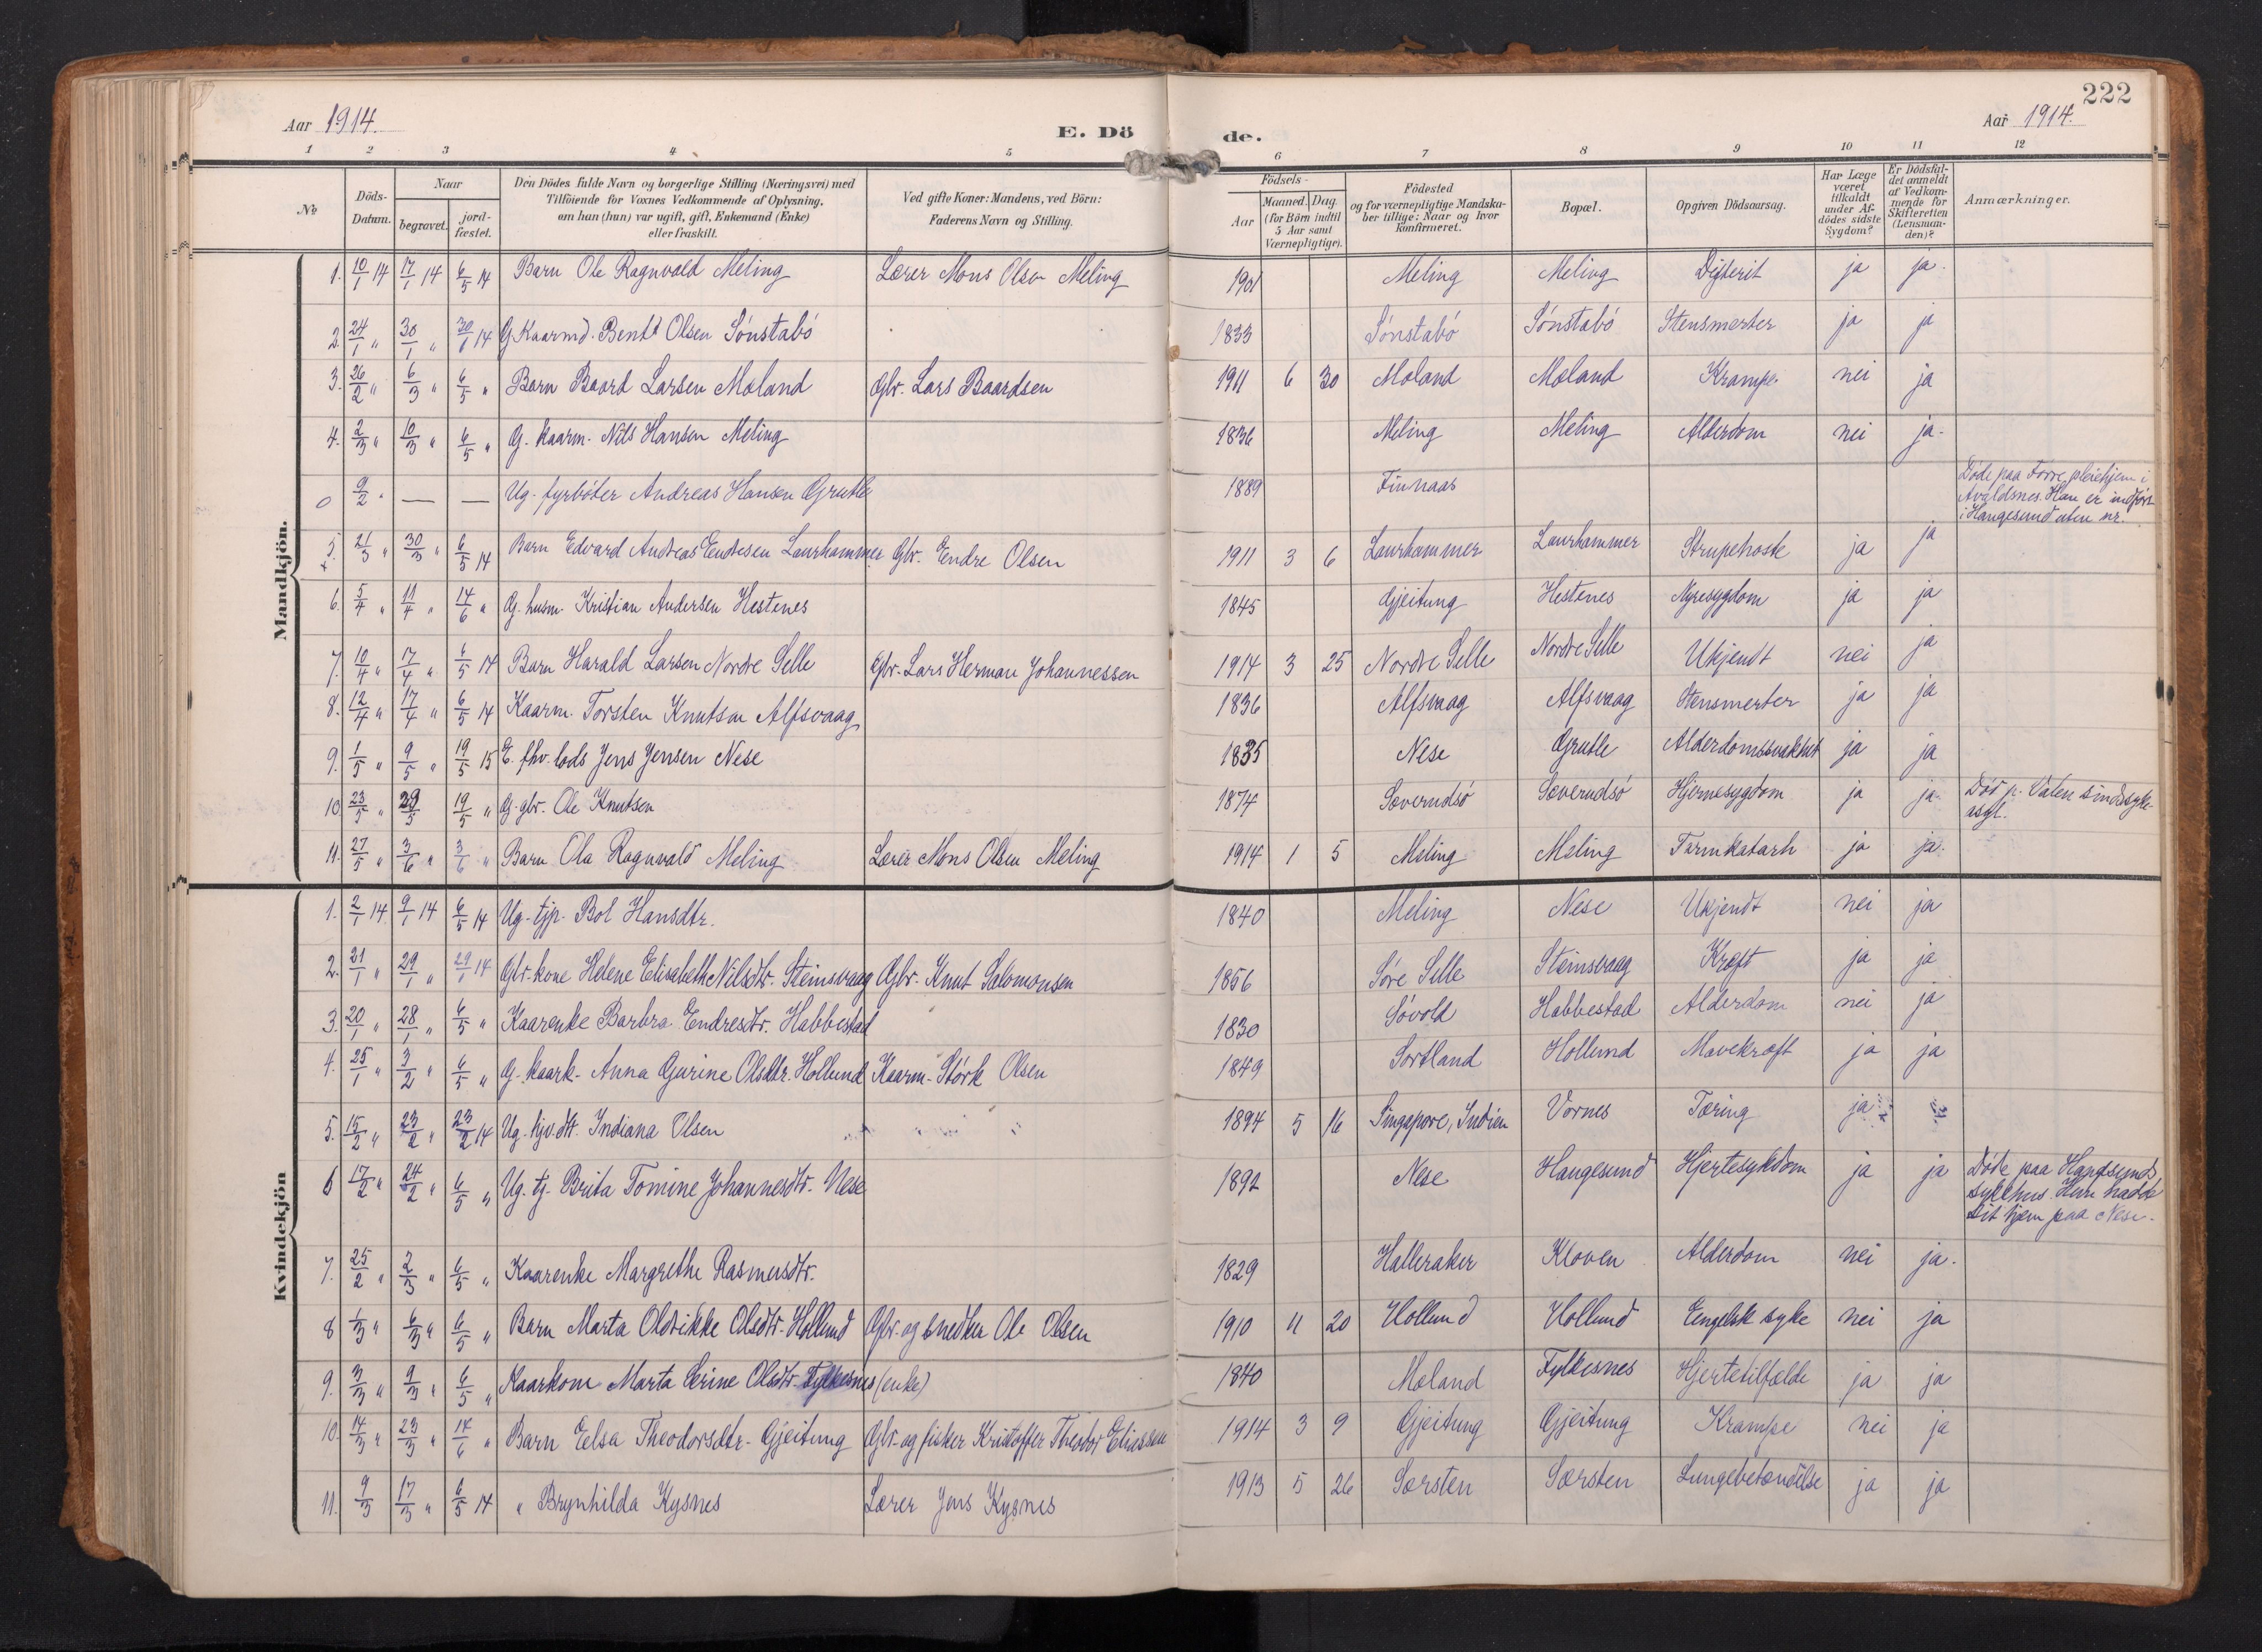 222
Aar 1914. E. Dö de. Aar 1914.
1 2 3 4 5 6 7 8 9 10 11 12
№
Döds-Datum.
Naar
begravet.
jord-fæstet.
Den Dödes fulde Navn og borgerlige Stilling (Næringsvei) med
Tilföiende for Voxnes Vedkommende af Oplysning,
om han (hun) var ugift, gift, Enkemand (Enke)
eller fraskilt.
Ved gifte Koner: Mandens, ved Börn:
Faderens Navn og Stilling.
Födsels-
Aar
Maaned. Dag.
(for Börn indtil
5 Aar samt
Værnepligtige).
Födested
og for værnepligtige Mandska-
ber tillige: Naar og hvor
konfirmeret.
Bopæl.
Opgiven Dödsaarsag.
Har Læge
været
tilkaldt
under Af-
dödes sidste
Sygdom?
Er Dödsfal-
det anmeldt
af Vedkom-
mende for
Skifteretten
(Lensman-
den)?
Anmærkninger.
Mandkjön.
1. 10/1 14 17/1 14 6/5 14 Barn Ole Ragnvald Meling Lærer Mons Olsen Meling 1901 Meling Meling Difterit ja ja.
2. 24/1 " 30/1 " 30/1 14 G. Kaarmd. Bent Olsen Sönstabö 1833 Sönstabö Sönstabö Stensmerter ja ja
3. 26/2 " 6/3 " 6/5 " Barn Baard Larsen Moland Gbr. Lars Baardsen 1911 6 30 Moland Moland Krampe. nei ja
4. 2/3 " 10/3 " 6/5 " G. kaarm. Nils Hansen Meling 1836 Meling Meling Alderdom nei ja.
0 9/2 " — — Ug. fyrböter Andreas Hansen Grutle 1889 Finnaas Döde paa Förre pleiehjem i
Avaldsnes. Han er indfört
i Haugesund uten nr.
5. 21/3 " 30/3 " 6/5 14 Barn Edvard Andreas Endresen Laurhammer Gbr. Endre Olsen 1911 3 6 Laurhammer Laurhammer Strupehoste ja ja
6. 5/4 " 11/4 " 14/6 " G. husm. Kristian Andersen Hestenes 1845 Gjeitung Hestenes Nyresygdom ja ja
7. 10/4 " 17/4 " 6/5 14 Barn Harald Larsen Nordre Selle Gbr. Lars Herman Johannessen 1914 3 25 Nordre Selle Nordre Selle Ukjendt nei ja
8. 12/4 " 17/4 " 6/5 14 Kaarm. Torsten Knutsen Alfsvaag 1836 Alfsvaag Alfsvaag Stensmerter ja ja
9. 1/5 " 9/5 " 19/5 15 E. fhv. lods Jens Jensen Nese 1835 Nese Grutle Alderdomssvakhet ja ja
10 23/5 " 29/5 19/5 " G. gbr. Ole Knutsen 1874 Sæverudsö Sæverudsö Hjernesygdom ja ja. Död p. Valen sindssyke
asyl.
11. 27/5 " 3/6 " 3/6 " Barn Ola Ragnvald Meling Lærer Mons Olsen Meling 1914 1 5 Meling Meling Tarmkatarh ja ja.
Kvindekjön
1. 2/1 14. 9/1 14 6/5 14 Ug. tjp. Bol Hansdtr. 1840 Meling Nese Ukjendt nei ja
2. 21/1 " 29/1 " 29/1 14 Gbr. kone Helene Elisabeth Nilsdtr. Steinsvaag Gbr. Knut Salomonsen 1856 Söre Selle Steinsvaag Kræft ja ja
3. 20/1 " 28/1 " 6/5 " Kaarenke Barbra Endresdtr. Habbestad 1830 Sövold Habbestad Alderdom nei ja
4. 25/1 " 3/2 " 6/5 " G. kaark. Anna Gurine Olsdtr. Hollund Kaarm. Störk Olsen 1849 Sortland Hollund Mavekræft ja ja
5. 15/2 " 23/2 " 23/2 14 Ug. hjv. dtr. Indiana Olsen 1894 5 16 Singapore, Indien Vornes Tæring ja
6 17/2 " 24/2 " 6/5 " Ug. tj. Brita Tomine Johannesdtr. Nese 1892 Nese Haugesund Hjertesykdom ja ja Döde paa Haugesunds
sykehus. Hun hadde
sit hjem paa Nese.
7. 25/2 " 2/3 " 6/5 " Kaarenke Margrethe Rasmusdtr. 1829 Halleraker Kloven Alderdom nei ja.
8 1/3 " 6/3 " 6/5 " Barn Marta Oldrikke Olsdtr. Hollund Gbr. og snedker Ole Olsen 1910 11 20 Hollund Hollund Engelsk syke nei ja
9. 3/3 " 9/3 " 6/5 " Kaarkone Marta Serine Olsdtr. Fylkesnes (enke) 1840 Moland Fylkesnes Hjertetilfælde ja ja
10. 14/3 " 23/3 " 14/6 " Barn Eelsa Theodorsdtr. Gjeitung Gbr. og fisker Kristoffer Theodor Eliassen 1914 3 9 Gjeitung Gjeitung Krampe nei ja
11. 9/3 17/3 " 6/5 14 " Brynhilda Kysnes Lærer Jens Kysnes 1913 5 26 Særsten Særsten Lungebetændelse ja ja